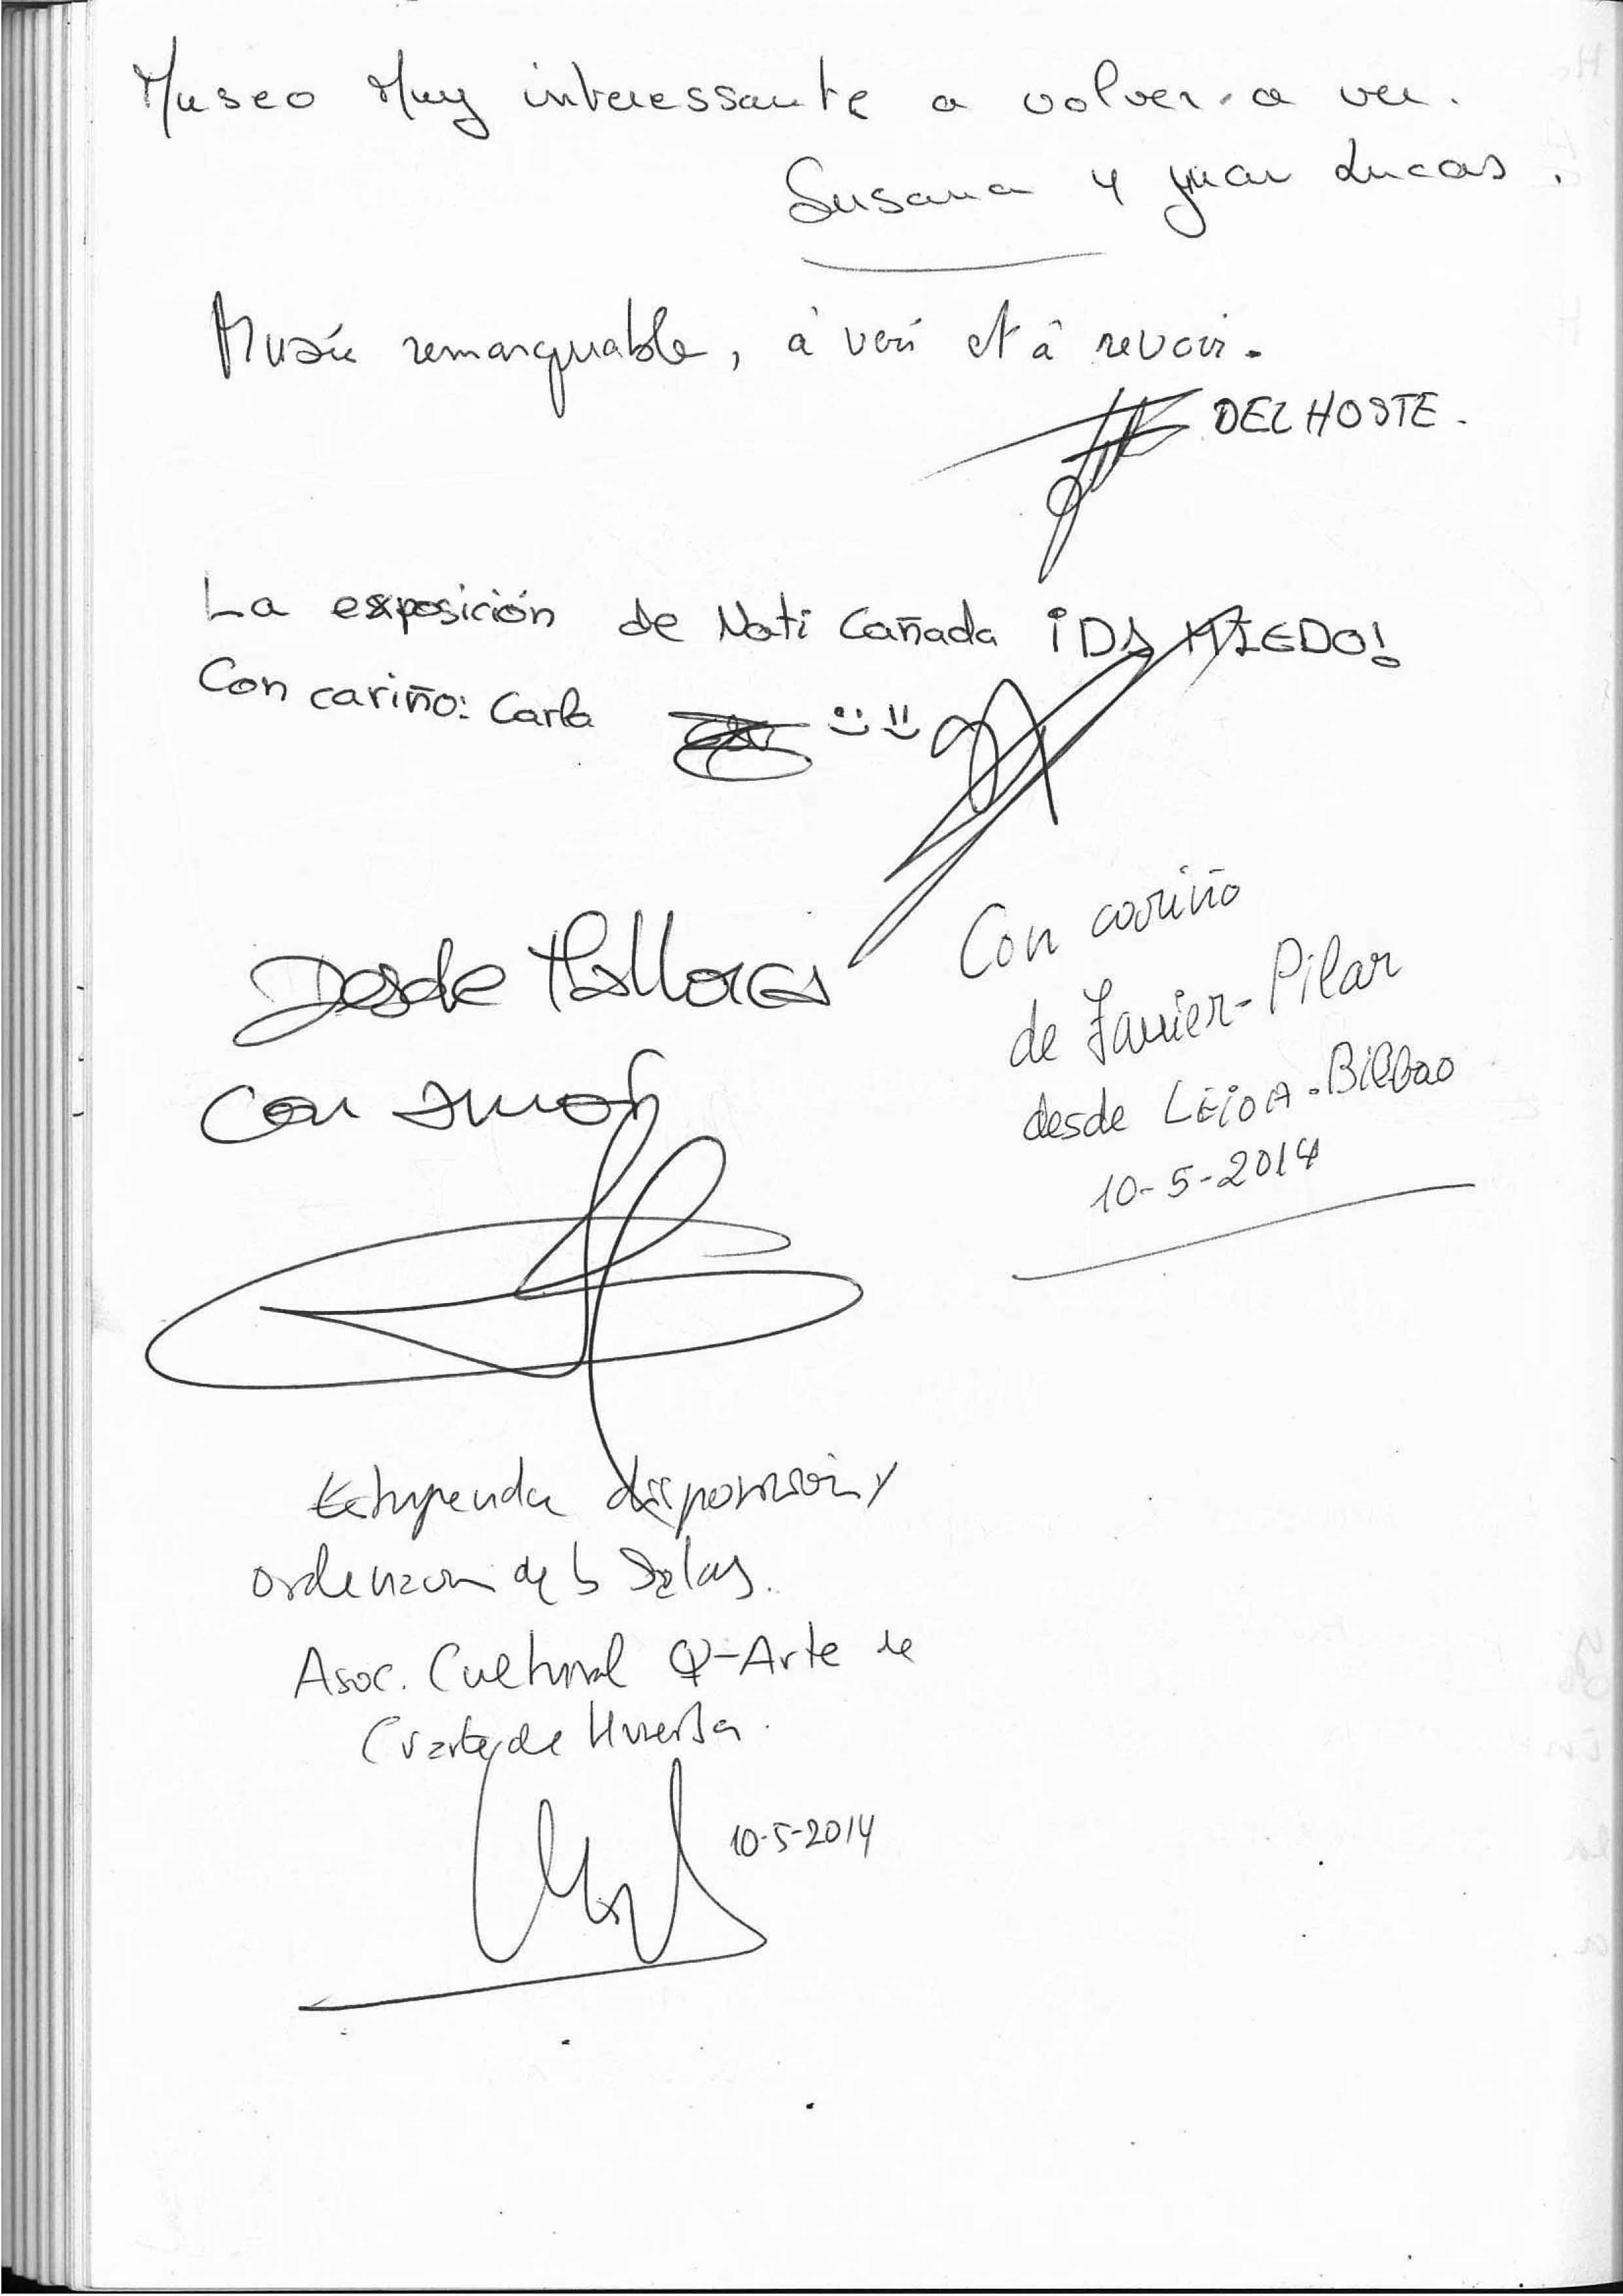 Museo Muy interessante a volver a ver.
Susana y Juan Lucas.
Musée remarquable, à voir et à revoir.
DELHOSTE.
La exposición de Nati Cañada ¡DA MIEDO!
Con cariño: Carla
Desde Mallorca
Con amor
Con cariño
de Javier-Pilar
desde LEIOA-Bilbao
10-5-2014
Estupenda disposición y
ordenacion de las Salas.
Asoc. Cultural Q-Arte de
Cuarte de Huerva.
10-5-2014